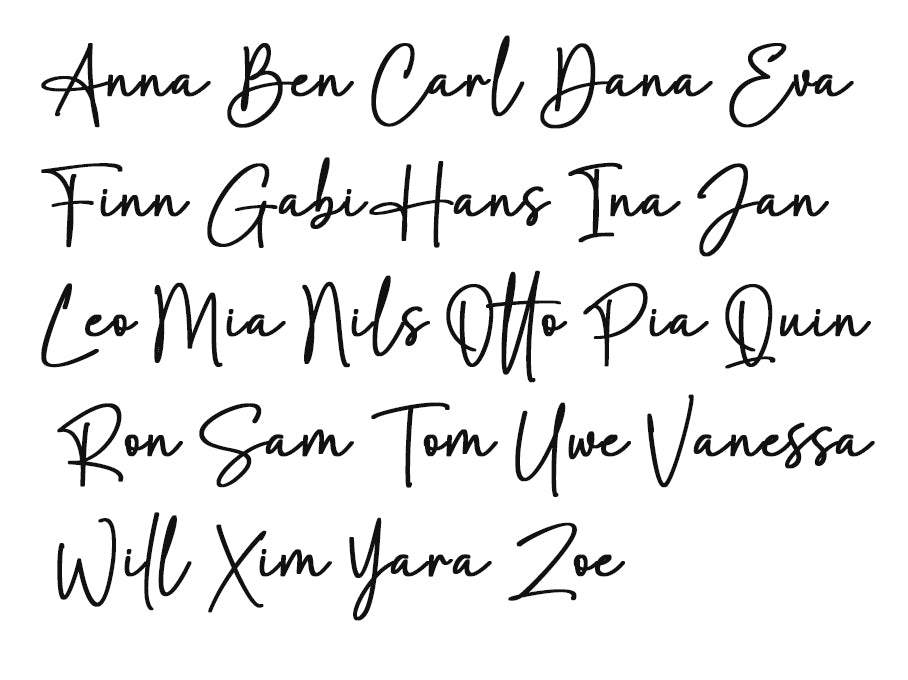 Anna Ben Carl Dana Eva
Finn Gabi Hans Ina Jan
Leo Mia Nils Otto Pia Quin
Ron Sam Tom Uwe Vanessa
Will Xim Yara Zoe